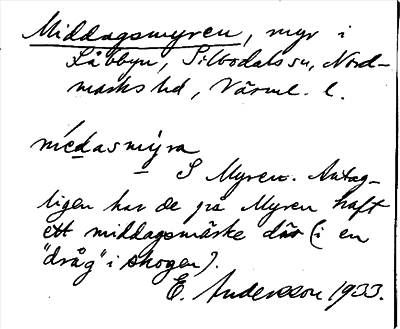 Middagsmyren, myr i
Låbbyn, Silbodals sn, Nord-
marks hd, Värml. l.
medasmýra
S Myren. Antag-
ligen har de på Myren haft
ett middagsmärke där (i en
"dråg" i skogen).
E. Andersson 1933.